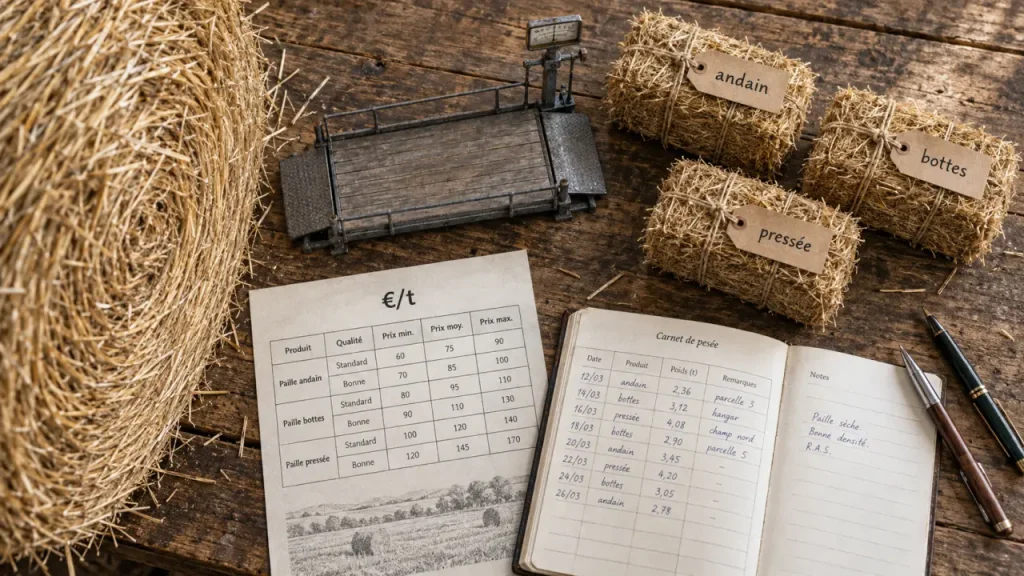 andain
bottes
pressée
€/t
Produit Qualité Prix min. Prix moy. Prix max.
Paille andain Standard 60 75 90
Bonne 70 85 100
Paille bottes Standard 80 95 110
Bonne 90 110 130
Paille pressée Standard 100 120 140
Bonne 120 145 170
Carnet de pesée
Date Produit Poids (t) Remarques
12/03 andain 2,36 parcelle 3
14/03 bottes 3,12 hangar
16/03 pressée 4,08 champ nord
18/03 bottes 2,90 parcelle 5
20/03 andain 3,45 –
22/03 pressée 4,20 –
24/03 bottes 3,05 –
26/03 andain 2,78 –
Notes
Paille sèche
Bonne densité
R.A.S.